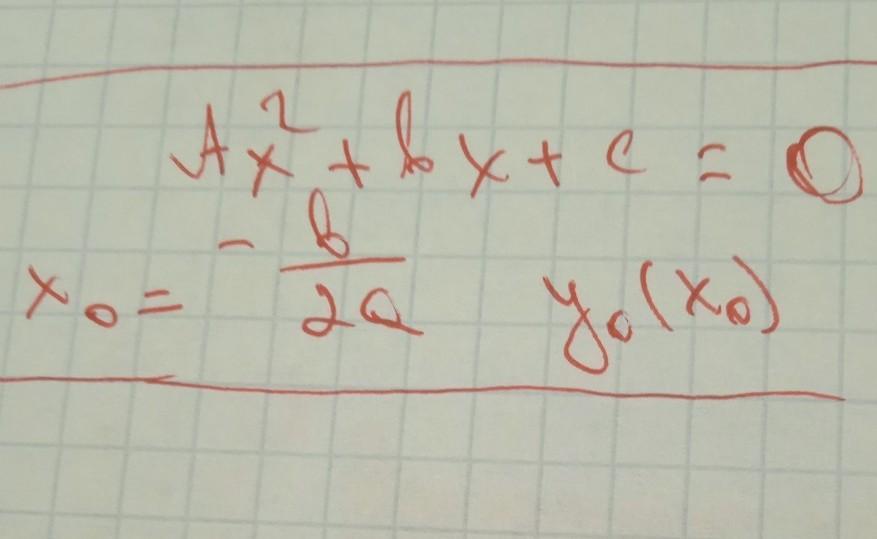 Ax² + bx + c = 0
x₀ = -b/2a y₀(x₀)